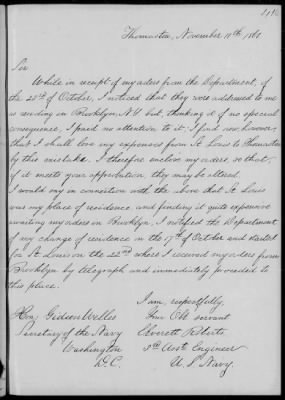 Thomaston, November 11th 1861
Sir
While in receipt of my orders from the Department, of
the 22nd of October, I noticed that they were addressed to me
as residing in Brooklyn, N.Y. but, thinking it of no special
consequence, I paid no attention to it, I find now, however,
that I shall lose my expenses from St Louis to Thomaston
by this mistake. I therefore enclose my orders so that,
if it meets your approbation, they may be altered.
I would say in connection with the above that St Louis
was my place of residence, and finding it quite expensive
awaiting my orders in Brooklyn, I notified the Department
of my change of residence on the 17th of October and started
for St. Louis on the 22nd where I received my orders from
Brooklyn by telegraph and immediately proceeded to
this place.
I am, respectfully,
Hon. Gideon Welles Your Obt servant
Secretary of the Navy Everett Roberts,
Washington 3rd Asst Engineer
D.C. U.S. Navy.